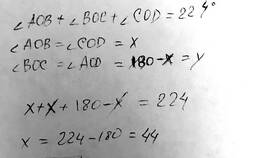 ∠AOB + ∠BOC + ∠COD = 224°
∠AOB = ∠COD = x
∠BOC = ∠AOD = 180 - x = y
x + x + 180 - x = 224
x = 224 - 180 = 44